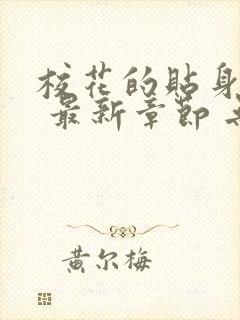 校花的貼身
最新章節
黄尔梅